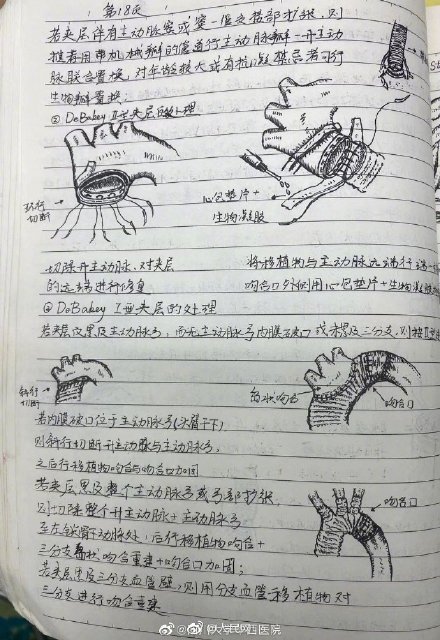 第18页
若夹层伴有主动脉窦或窦-管交接部扩张,则
推荐用带机械瓣的管道行主动脉瓣-升主动
脉联合置换,对年龄较大或有抗凝禁忌者可行
生物瓣置换.
③ DeBakey Ⅱ型夹层的处理
斜行
切断
心包垫片+
生物凝胶
切除升主动脉,对夹层
的远端进行修复
将移植物与主动脉远端行端-端
吻合口外侧用心包垫片+生物凝胶
④ DeBakey Ⅰ型夹层的处理
若夹层仅累及主动脉弓,而无主动脉弓内膜破口或未累及三分支,则按Ⅱ型
斜行
切断
吻合口
若内膜破口位于主动脉弓(头臂干下)
则斜行切断升主动脉与主动脉弓,
之后行移植物吻合与吻合口加固
若夹层累及整个主动脉弓或弓部扩张,
则切除整个升主动脉+主动脉弓
至左锁骨下动脉处,后行移植物吻合+
吻合口
三分支岛状吻合重建+吻合口加固;
若夹层累及三分支血管壁,则用分支血管移植物对
三分支进行吻合重建